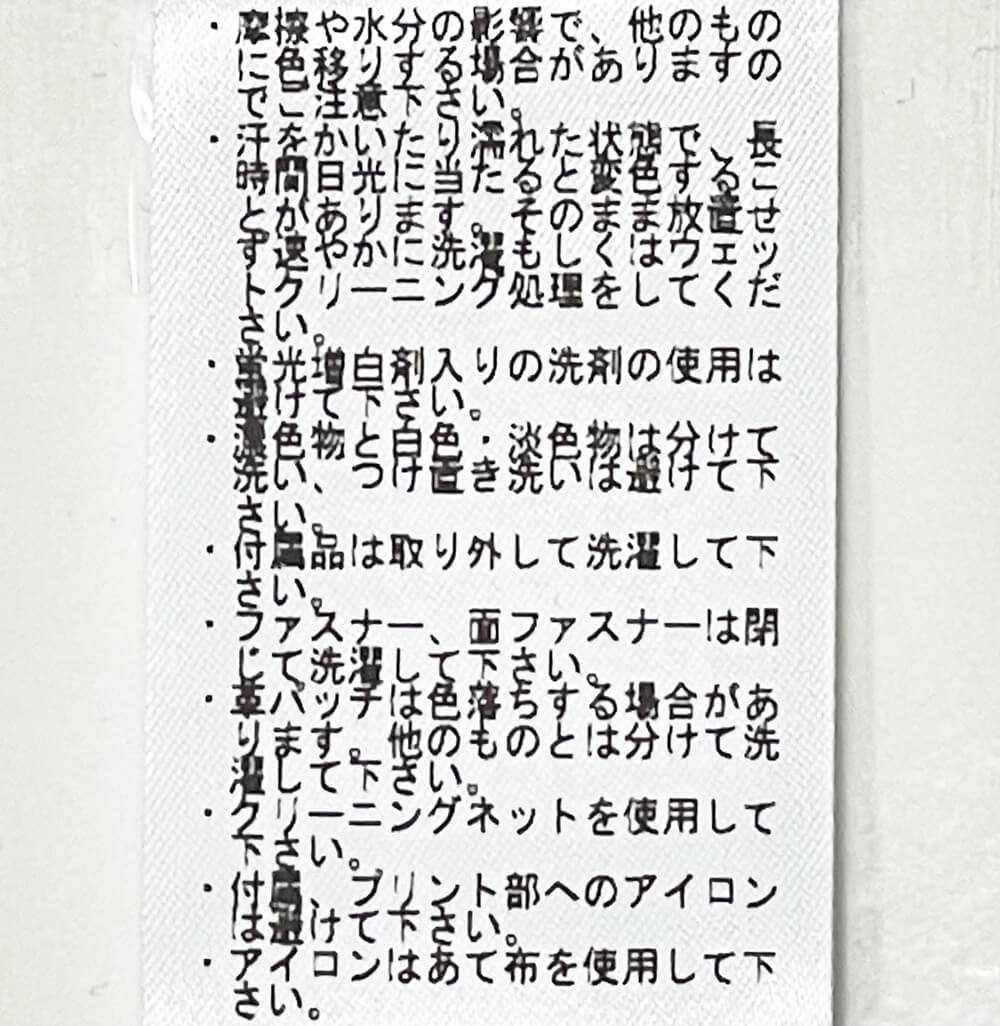 ・摩擦や水分の影響で、他のもの
に色移りする場合がありますの
でご注意下さい。
・汗をかいたり濡れた状態で、長
時間日光に当たると変色するこ
とがあります。そのまま放置せ
ず速やかに洗濯もしくはウェッ
トクリーニング処理をしてくだ
さい。
・蛍光増白剤入りの洗剤の使用は
避けて下さい。
・濃色物と白色・淡色物は分けて
洗い、つけ置き洗いは避けて下
さい。
・付属品は取り外して洗濯して下
さい。
・ファスナー、面ファスナーは閉
じて洗濯して下さい。
・革パッチは色落ちする場合があ
ります。他のものとは分けて洗
濯して下さい。
・クリーニングネットを使用して
下さい。
・付属、プリント部へのアイロン
は避けて下さい。
・アイロンはあて布を使用して下
さい。